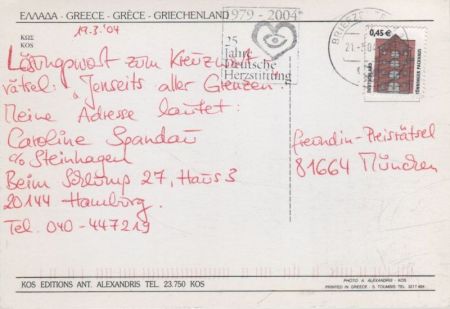 ΕΛΛΑΔΑ - GREECE - GRÈCE - GRIECHENLAND
ΚΩΣ
KOS
19.3.'04
1979 - 2004
25
Jahre
Deutsche
Herzstiftung
BRIEFZ
21-3.04
0,45 €
DEUTSCHLAND
TÖNNINGER PACKHAUS
Lösungswort zum Kreuzwort
rätsel: "Jenseits aller Grenzen.
Meine Adresse lautet:
Caroline Spandau
c/o Steinhagen
Beim Schlump 27, Haus 3
20144 Hamburg.
Tel. 040-447219
freundin-Preisrätsel
81664 München
KOS EDITIONS ANT. ALEXANDRIS TEL. 23.750 KOS
PHOTO A. ALEXANDRIS - KOS
PRINTED IN GREECE